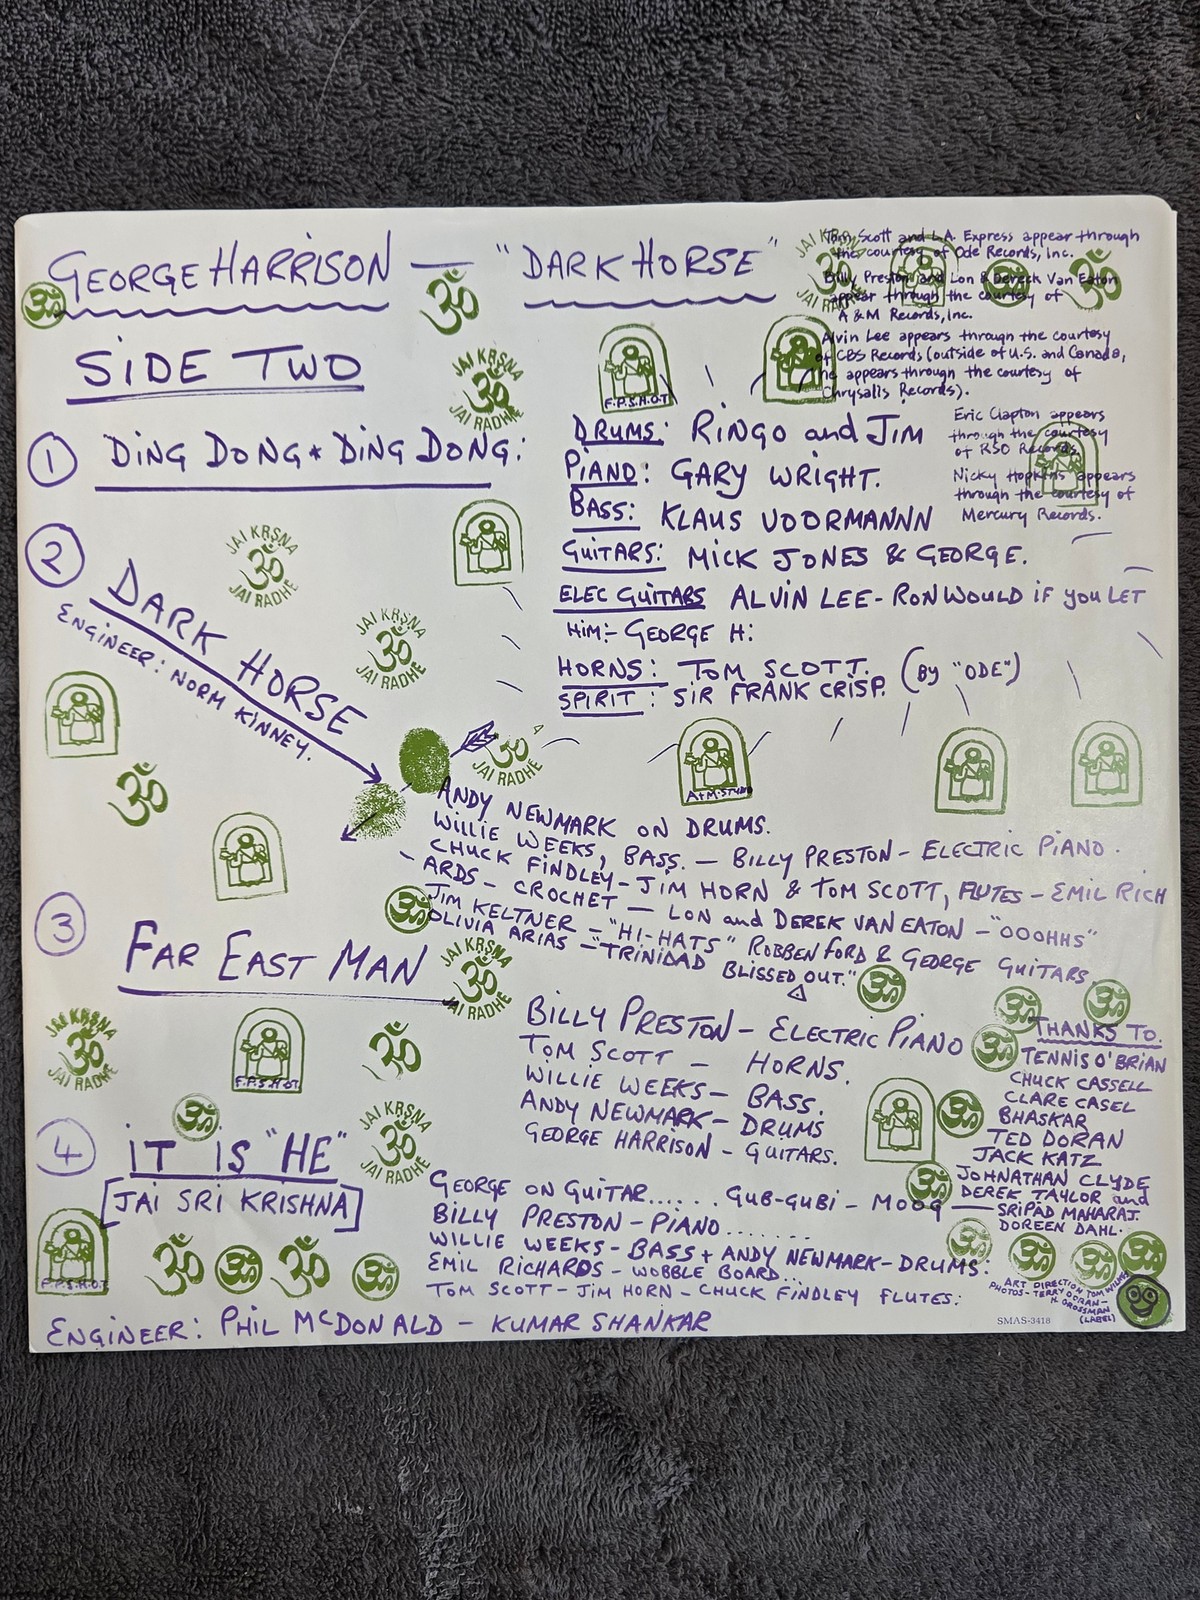 GEORGE HARRISON — "DARK HORSE"
Tom Scott and L.A. Express appear through
the courtesy of Ode Records, Inc.
Billy Preston and Lon & Dereck Van Eaton
appear through the courtesy of
A & M Records, Inc.
Alvin Lee appears through the courtesy
of CBS Records (outside of U.S. and Canada,
he appears through the courtesy of
Chrysalis Records).
Eric Clapton appears
through the courtesy
of RSO Records.
Nicky Hopkins appears
through the courtesy of
Mercury Records.
SIDE TWO
① DING DONG * DING DONG:
DRUMS: RINGO and JIM
PIANO: GARY WRIGHT.
BASS: KLAUS VOORMANNN
GUITARS: MICK JONES & GEORGE.
ELEC GUITARS ALVIN LEE - RON WOULD IF YOU LET
HIM:- GEORGE H:
HORNS: TOM SCOTT. (BY "ODE")
SPIRIT: SIR FRANK CRISP.
② DARK HORSE
ENGINEER: NORM KINNEY.
ANDY NEWMARK ON DRUMS.
WILLIE WEEKS, BASS. — BILLY PRESTON - ELECTRIC PIANO.
CHUCK FINDLEY - JIM HORN & TOM SCOTT, FLUTES - EMIL RICH
- ARDS - CROCHET — LON and DEREK VAN EATON - "OOOHHS"
JIM KELTNER - "HI-HATS" ROBBEN FORD & GEORGE GUITARS
OLIVIA ARIAS - "TRINIDAD BLISSED OUT."
③ FAR EAST MAN
BILLY PRESTON - ELECTRIC PIANO
TOM SCOTT — HORNS.
WILLIE WEEKS - BASS.
ANDY NEWMARK - DRUMS
GEORGE HARRISON - GUITARS.
④ IT IS "HE"
[JAI SRI KRISHNA]
GEORGE ON GUITAR...... GUB-GUBI - MOOG
BILLY PRESTON - PIANO........
WILLIE WEEKS - BASS + ANDY NEWMARK - DRUMS:
EMIL RICHARDS - WOBBLE BOARD...
TOM SCOTT - JIM HORN - CHUCK FINDLEY FLUTES:
ENGINEER: PHIL McDONALD - KUMAR SHANKAR
THANKS TO.
TENNIS O'BRIAN
CHUCK CASSELL
CLARE CASEL
BHASKAR
TED DORAN
JACK KATZ
JOHNATHAN CLYDE
DEREK TAYLOR and
SRIPAD MAHARAJ.
DOREEN DAHL.
ART DIRECTION TOM WILKES
PHOTOS - TERRY DORAN -
H. GROSSMAN
(LABEL)
SMAS-3418
JAI KRSNA
ॐ
JAI RADHE
F.P.S.H.O.T.
JAI KRSNA
ॐ
JAI RADHE
JAI KRSNA
ॐ
JAI RADHE
ॐ
JAI RADHE
A+M.STUDIO
JAI KRSNA
ॐ
JAI RADHE
JAI KRSNA
ॐ
JAI RADHE
F.P.S.H.O.T.
JAI KRSNA
ॐ
JAI RADHE
F.P.S.H.O.T.